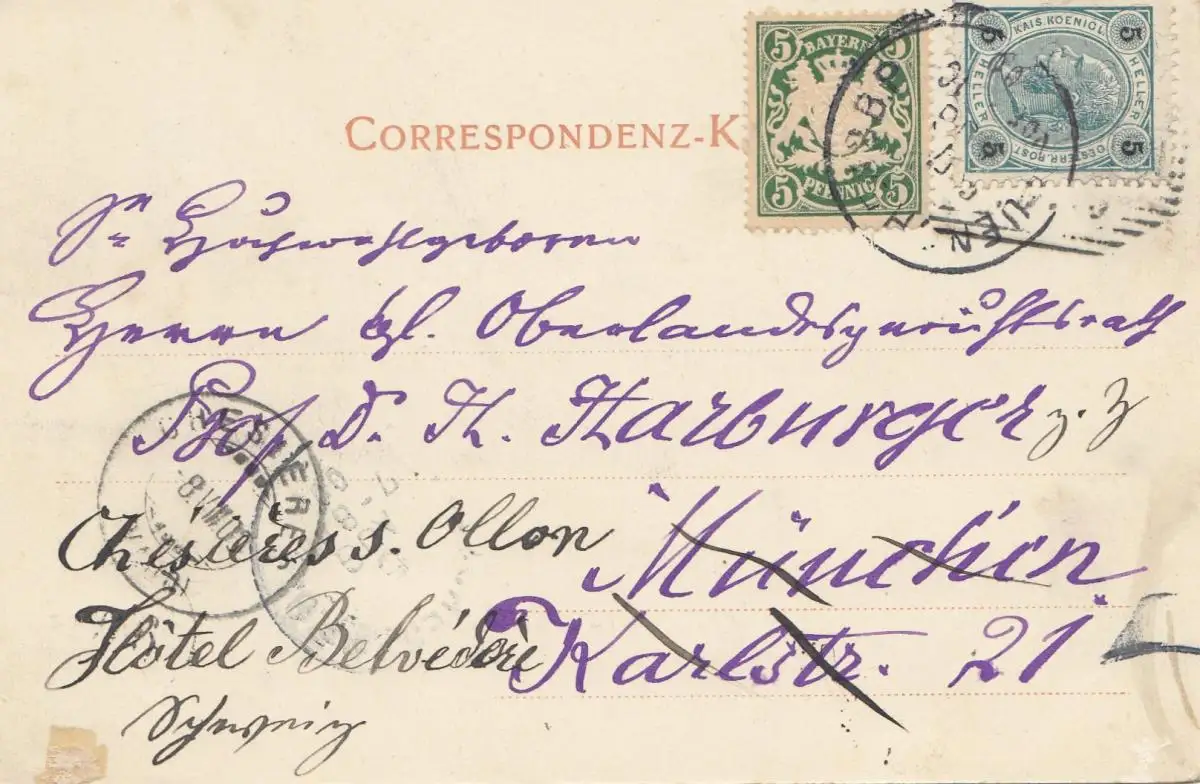 5 BAYERN 5
5 PFENNIG 5
KAIS. KOENIGL.
5 HELLER 5 HELLER
OESTERR. POST
CORRESPONDENZ-K
Sr Hochwohlgeboren
Herrn kgl. Oberlandesgerichtsrath
Prof. D. H. Harburger z. Z
München
Karlstr. 21.
Chesières s. Ollon
Hôtel Belvédère
Schweiz